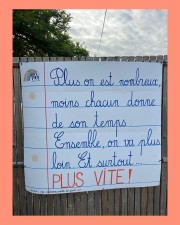 Plus on est nombreux,
moins chacun donne
de son temps
Ensemble, on va plus
loin. Et surtout...
PLUS VITE!